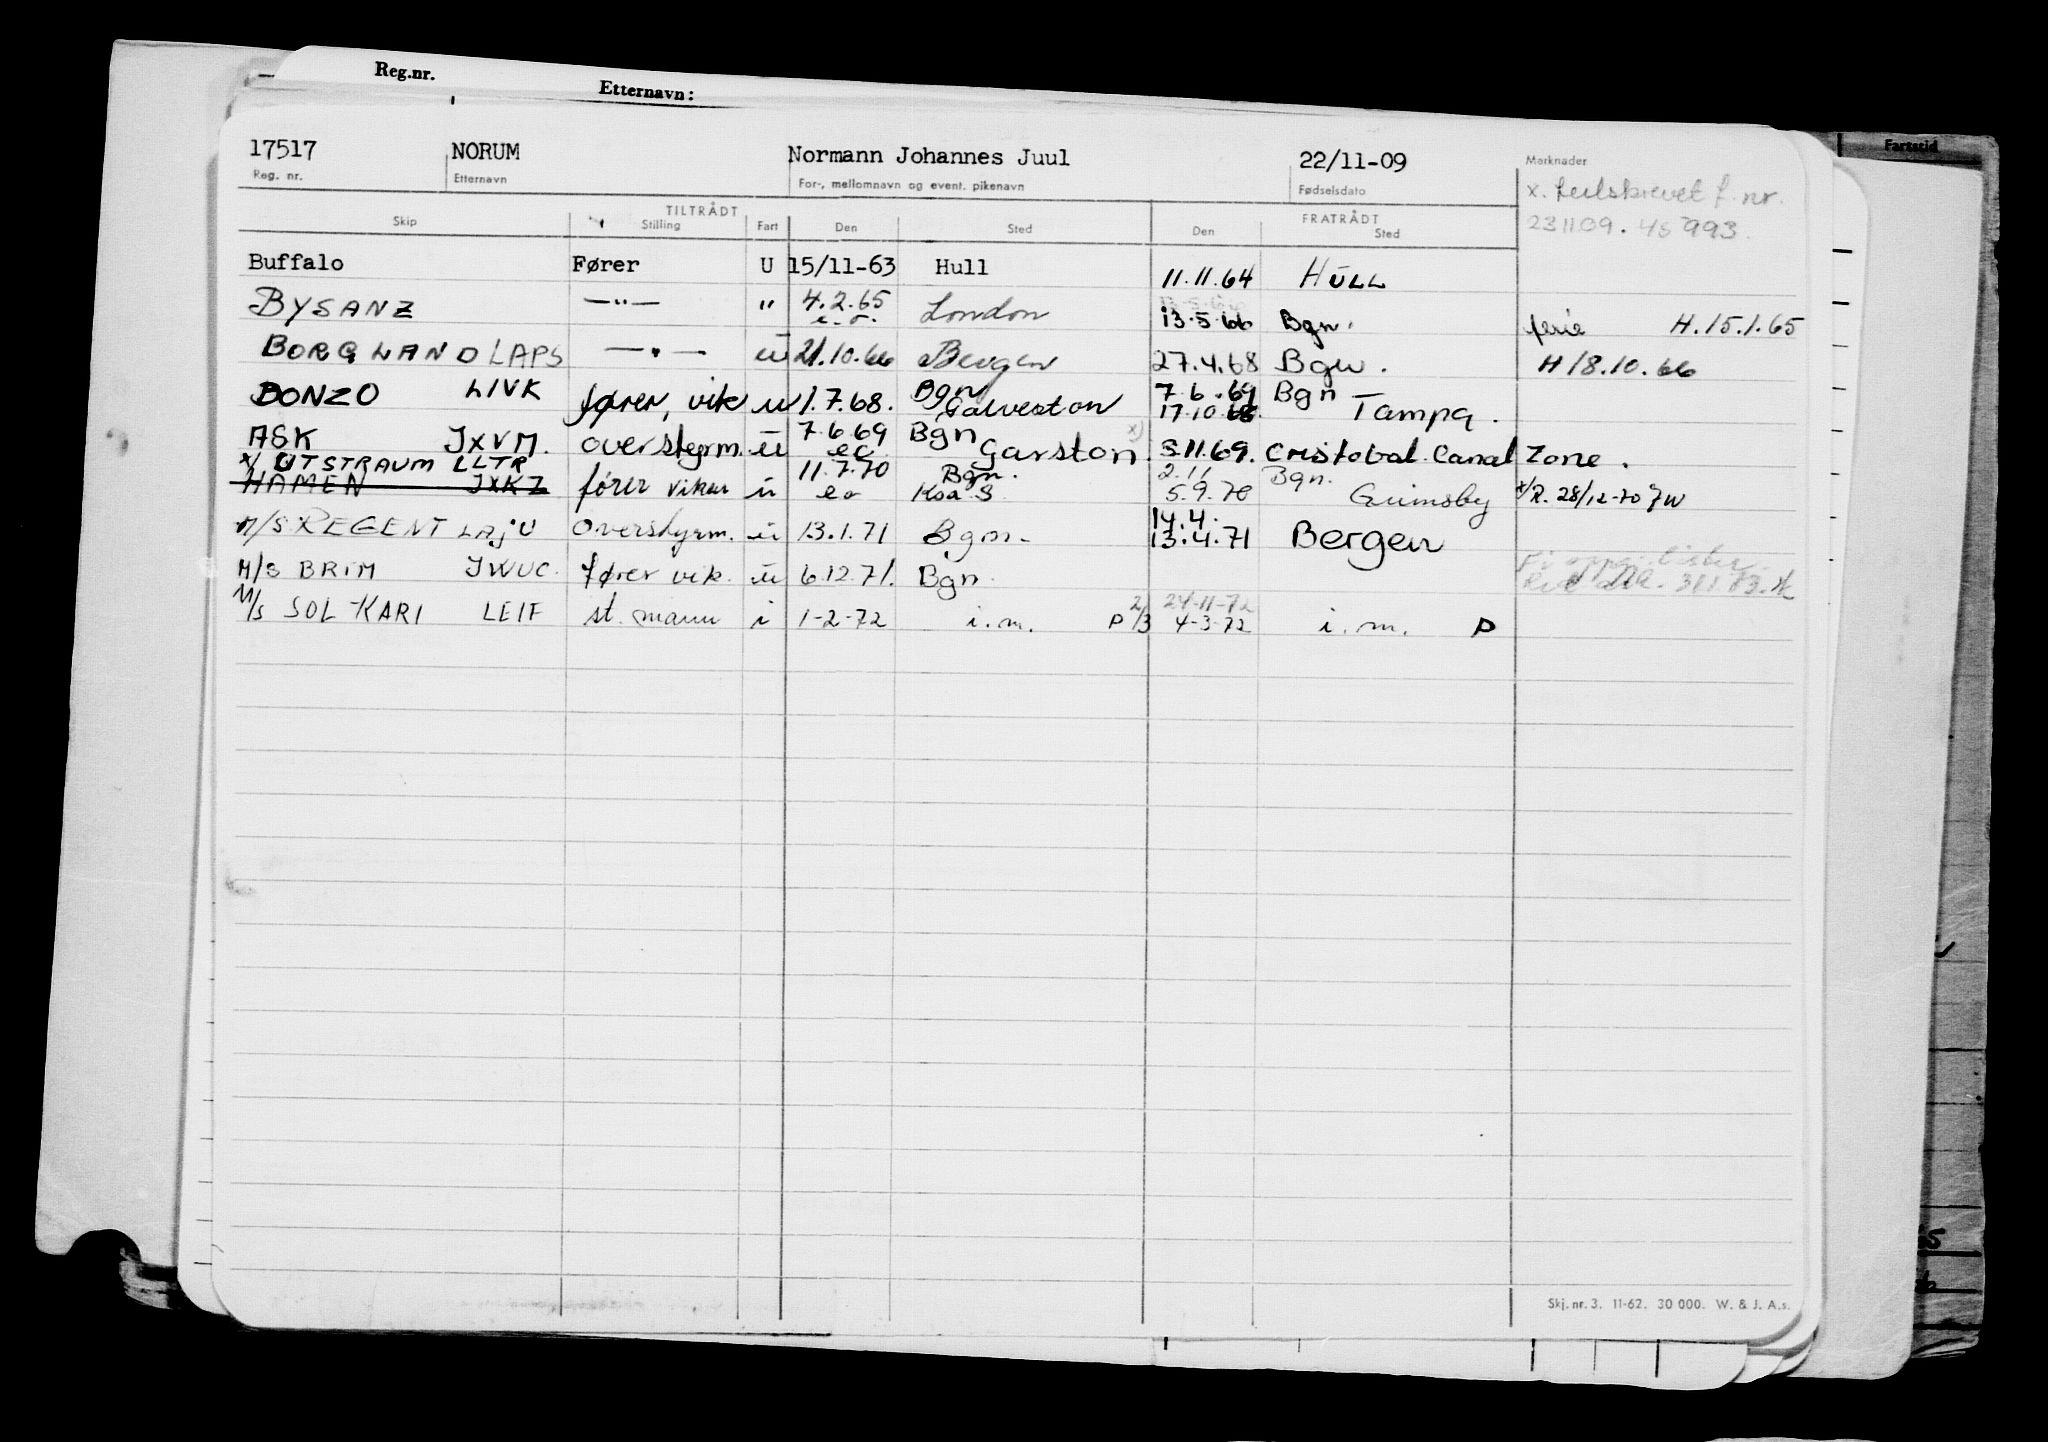 Reg.nr. Etternavn: Fartstid
17517 NORUM Normann Johannes Juul 22/11-09 Merknader
Reg. nr. Etternavn For-, mellomnavn og event. pikenavn Fødselsdato x. feilskrevet f. nr.
231109. 45993.
TILTRÅDT FRATRÅDT
Skip Stilling Fart Den Sted Den Sted
Buffalo Fører U 15/11-63 Hull 11.11.64 HULL
BYSANZ —"— " 4.2.65 London 13.5.66 Bgn. ferie H.15.1.65
e.o.
BORGLAND LAPS —"— u 21.10.66 Bergen 27.4.68 Bgn. H 18.10.66
BONZO LIVK fører, vik u 1.7.68. Bgn Galveston 7.6.69 Bgn
17.10.68. Tampa.
ASK JXVM. overstyrm. u 7.6.69 Bgn Garston x) 3.11.69. Cristobal Canal Zone.
eo
x/ UTSTRAUM LLTR 11.7.70 Bgn. 2.11 Bgn.
HAMEN JXKZ fører vikar u eo Ksa S 5.9.70 Grimsby x/R. 28/12-70 JW
M/S REGENT LAJU Overstyrm. u 13.1.71 Bgn. 14.4.
13.4.71 Bergen
M/S BRIM JWUC. fører vik. u 6.12.71. Bgn.
M/S SOL KARI LEIF st. mann i 1-2-72 i.m. P 2/3 24-11-72
4-3-72 i.m. P
Skj. nr. 3. 11-62. 30 000. W. & J. A.s.